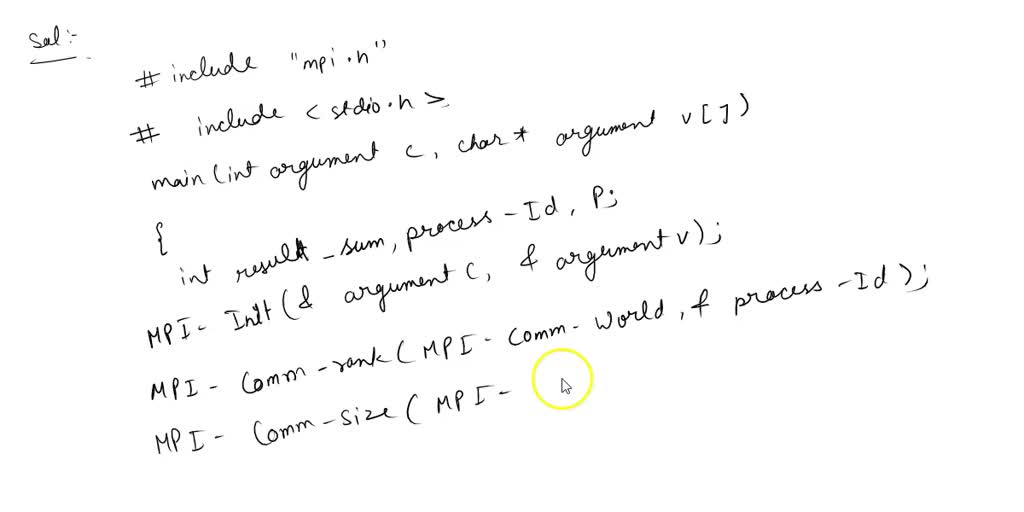 Sol:-
# include "mpi.h"
# include <stdio.h>
main(int argument c, char* argument v[])
{
int result_sum, process-Id, P;
MPI-Init(& argument c, & argument v);
MPI-Comm-rank(MPI-Comm-World, & process-Id);
MPI-Comm-size(MPI-